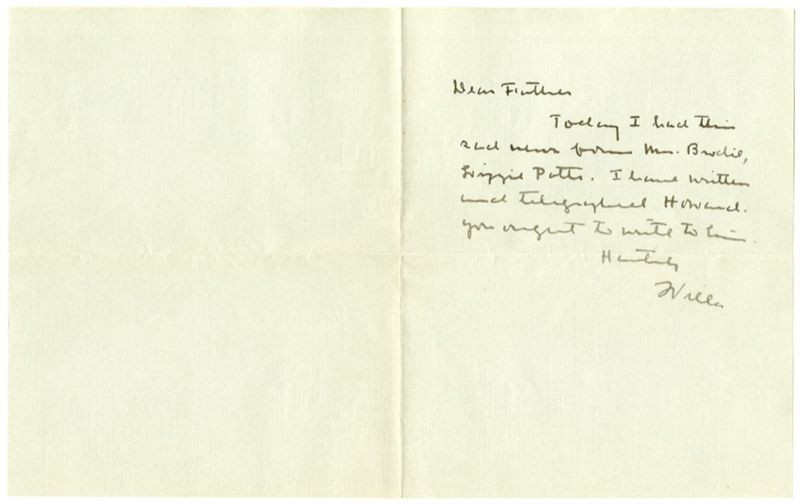 Dear Father
Today I had this
sad news from Mrs. Brodie,
Lizzie Potts. I have written
and telegraphed Howard.
You ought to write to him.
Hastily
Willa